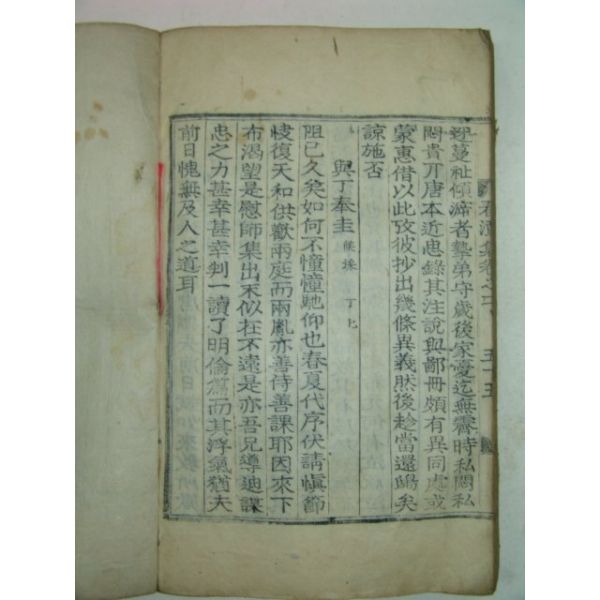 蔓祉傾溯者摯弟守歲後家憂迄無霽時私悶私
悶貴亓唐本近思錄其注說與鄙冊頗有異同處或
蒙惠借以此攷彼抄出幾條異義然後趁當還鴋矣
諒施否
與丁奉圭
阻已久矣如何不憧憧馳仰也春夏代序伏請愼節
悽復天和供歡兩庭而兩胤亦善侍善課耶因來下
布渴望是慰師集出末似在不遠是亦吾兄導迪謀
忠之力甚幸甚幸判一讀了明倫篇而其浮氣猶夫
前日愧無及人之道耳
集卷之
五十五